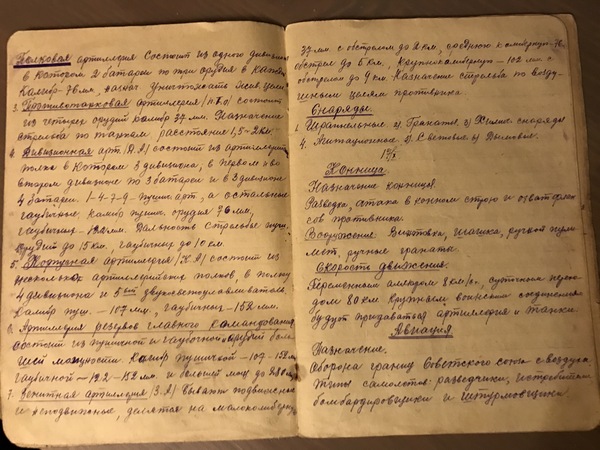 Полковая артиллерия состоит из одного дивизиона
в котором 2 батареи по три орудия в каждой
Калибр 76 мм,
3. Противотанковая артиллерия (п.т.о) состоит
из четырех орудий калибр 37 мм. Назначение
стрельба по танкам расстояние 1,5-2 км.
4. Дивизионная арт. (Д.А) состоит из артиллерий
полка в котором 3 дивизиона, в первом и во
втором дивизионе по 3 батареи и в 3 дивизионе
4 батареи. 1-4-7-9 пуш. арт, а остальные
гаубичные. калибр пушеч. орудия 76 мм,
гаубичных - 122 мм. Дальность стрельбы пуш.
орудий до 13 км, гаубичных до 10 км.
5. Корпусная артиллерия (К.А) состоит из
нескольких артиллерийских полков, в полку
4 дивизиона и 5ый звукометоулавливатель.
Калибр пуш. - 107 мм, гаубичных - 152 мм.
6. Артиллерия резерва главного командования
состоит из пушечной и гаубичной орудий боль
шей мощности. Калибр пушечной - 107 - 152 мм
гаубичной - 122 - 152 мм. и большей мощ до
7. Зенитная артиллерия (З.А) бывают подвижные
и неподвижные, делятся на малокалиберную
37 мм с обстрелом до 2 км, среднюю калибернуп. 76
обстрел до 5 км, крупнокалиберную - 102 мм с
обстрелом до 9 км. Назначение стрельба по возду-
шным целям противника.
Снаряды.
1. Шрапнельные. 2) Гранаты. 3) Химич. снаряды
4. Агитационные 5) Световые 6) Дымовые.
Конница.
Назначение конницы.
Разведка, атака в конном строю и охват флан
сов противника.
Вооружение. Винтовка, шашка, ручной пуле
мет, ручные гранаты.
Скорость движения.
Переменным аллюром 8 км/ч., суточный перехо
дом 80 км крупным воинским соединениям
будут придаваться артиллерия и танки.
Авиация
Назначение.
Оборона границ Советского союза с воздуха.
Типы самолетов: разведчики, истребители
бомбардировщики и штурмовщики.